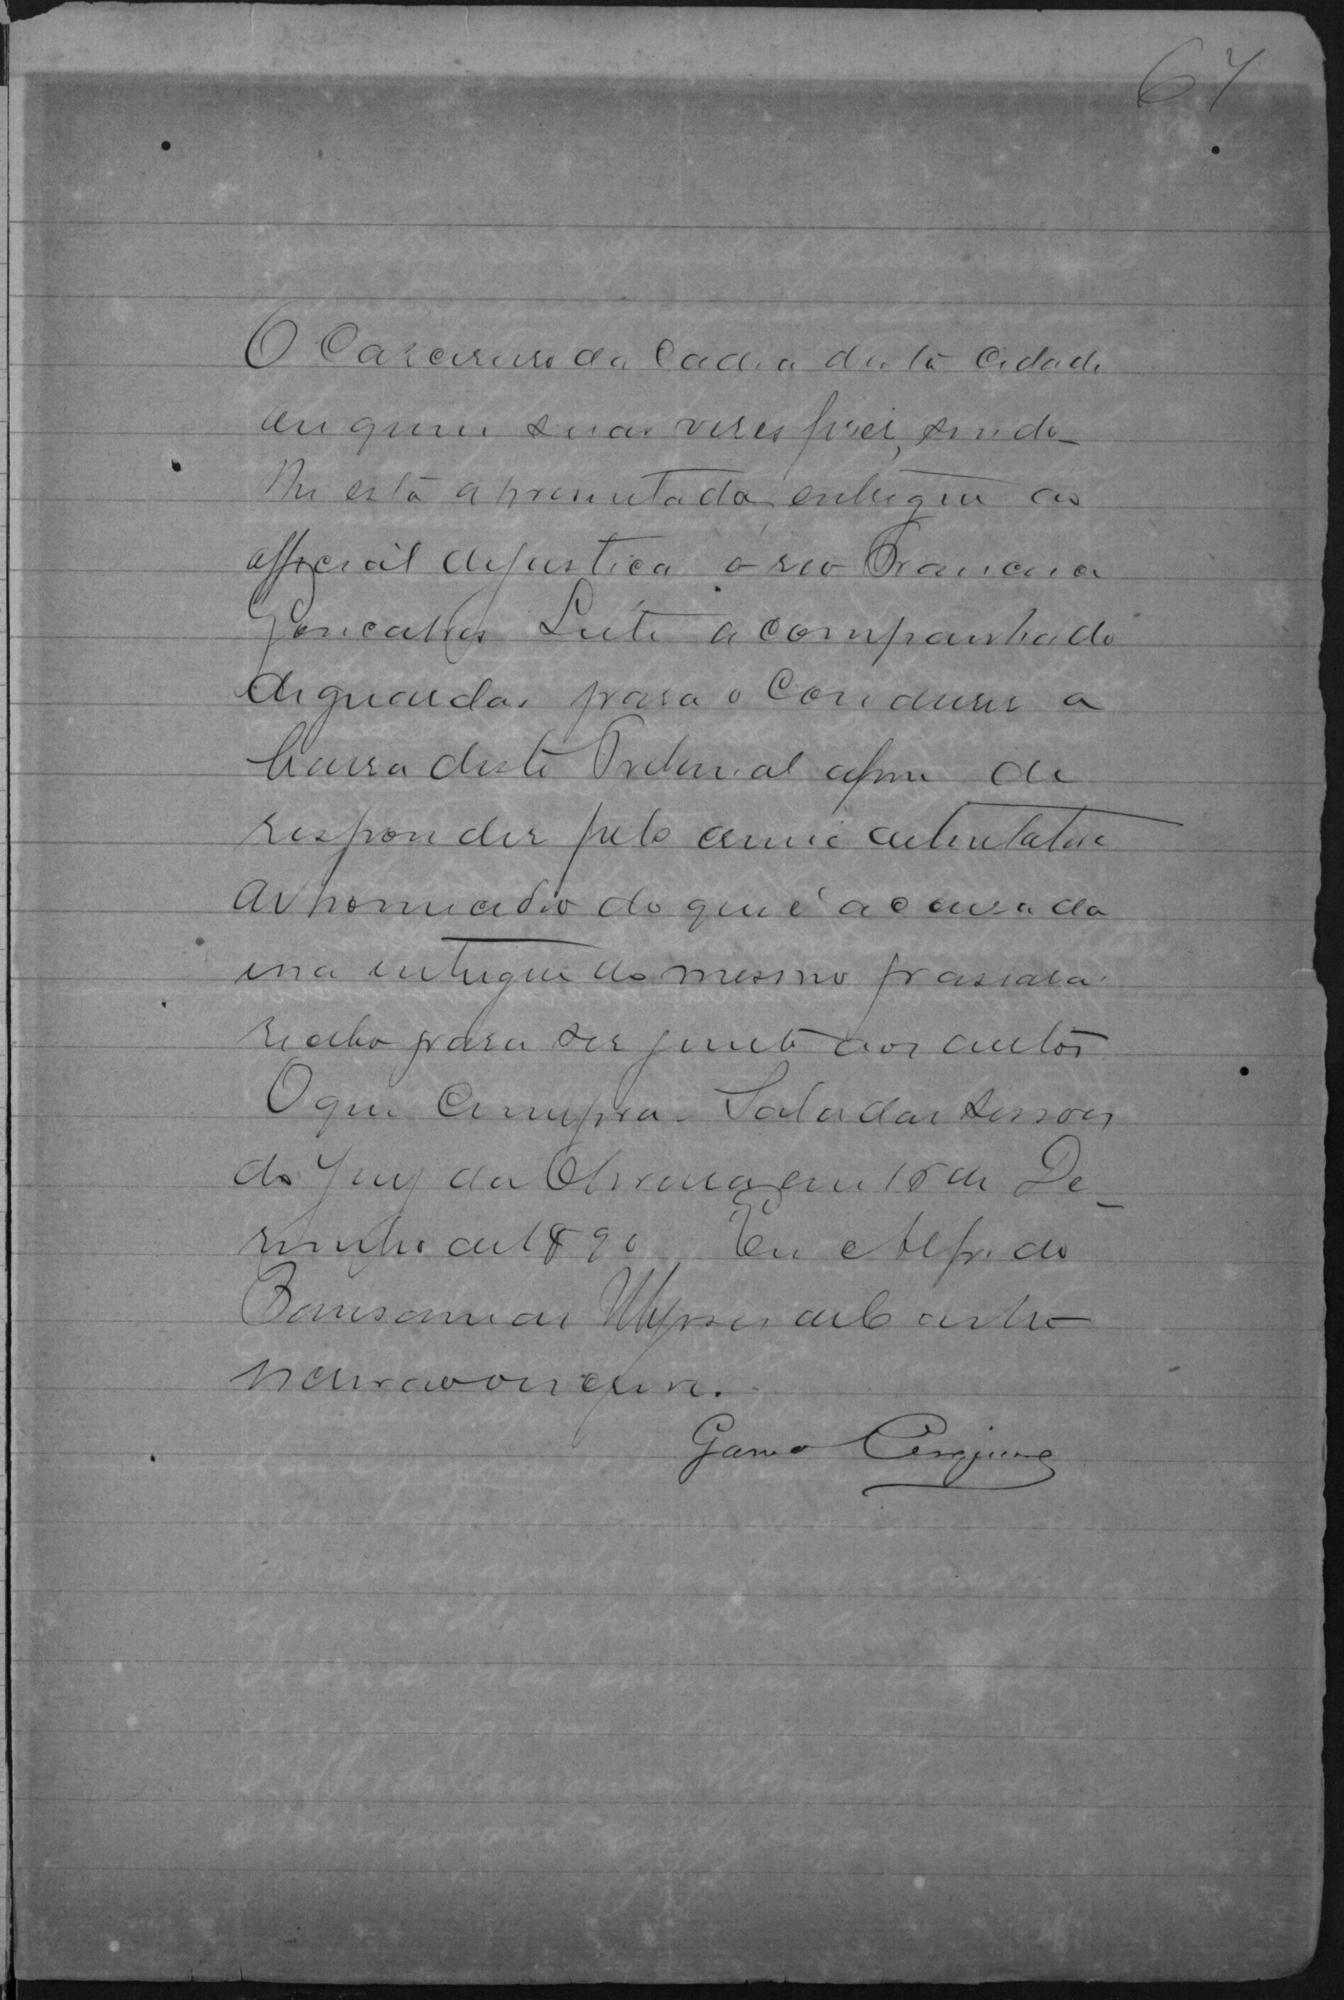 67
O Carcereiro da Cadea desta Cidade
ou quem suas veses fiser, sendo-
lhe esta apresentada, entregue ao
official de justiça o reo Francisco
Gonçalves Leite acompanhado
de guardas para o Conduser a
barra deste Tribunal afim de
responder pelo crime
do que é accusado
e na entregue do mesmo passara
recibo para ser junto aos autos
O que Cumpra. Sala das sessões
do Jury da em 16 de De-
zembro de 1890 Eu Alfredo
Ulysses de Castro
escrivão o escrevi.
Gama Cerqueira